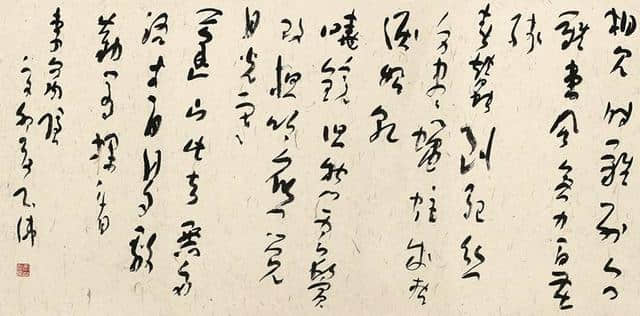 相見時難別亦
難東風無力百花
殘
春蠶到死絲
方盡蠟炬成灰
淚始乾
曉鏡但愁雲鬢
改夜吟應覺
月光寒
蓬山此去無多
路青鳥為殷
勤為探看
李商隱